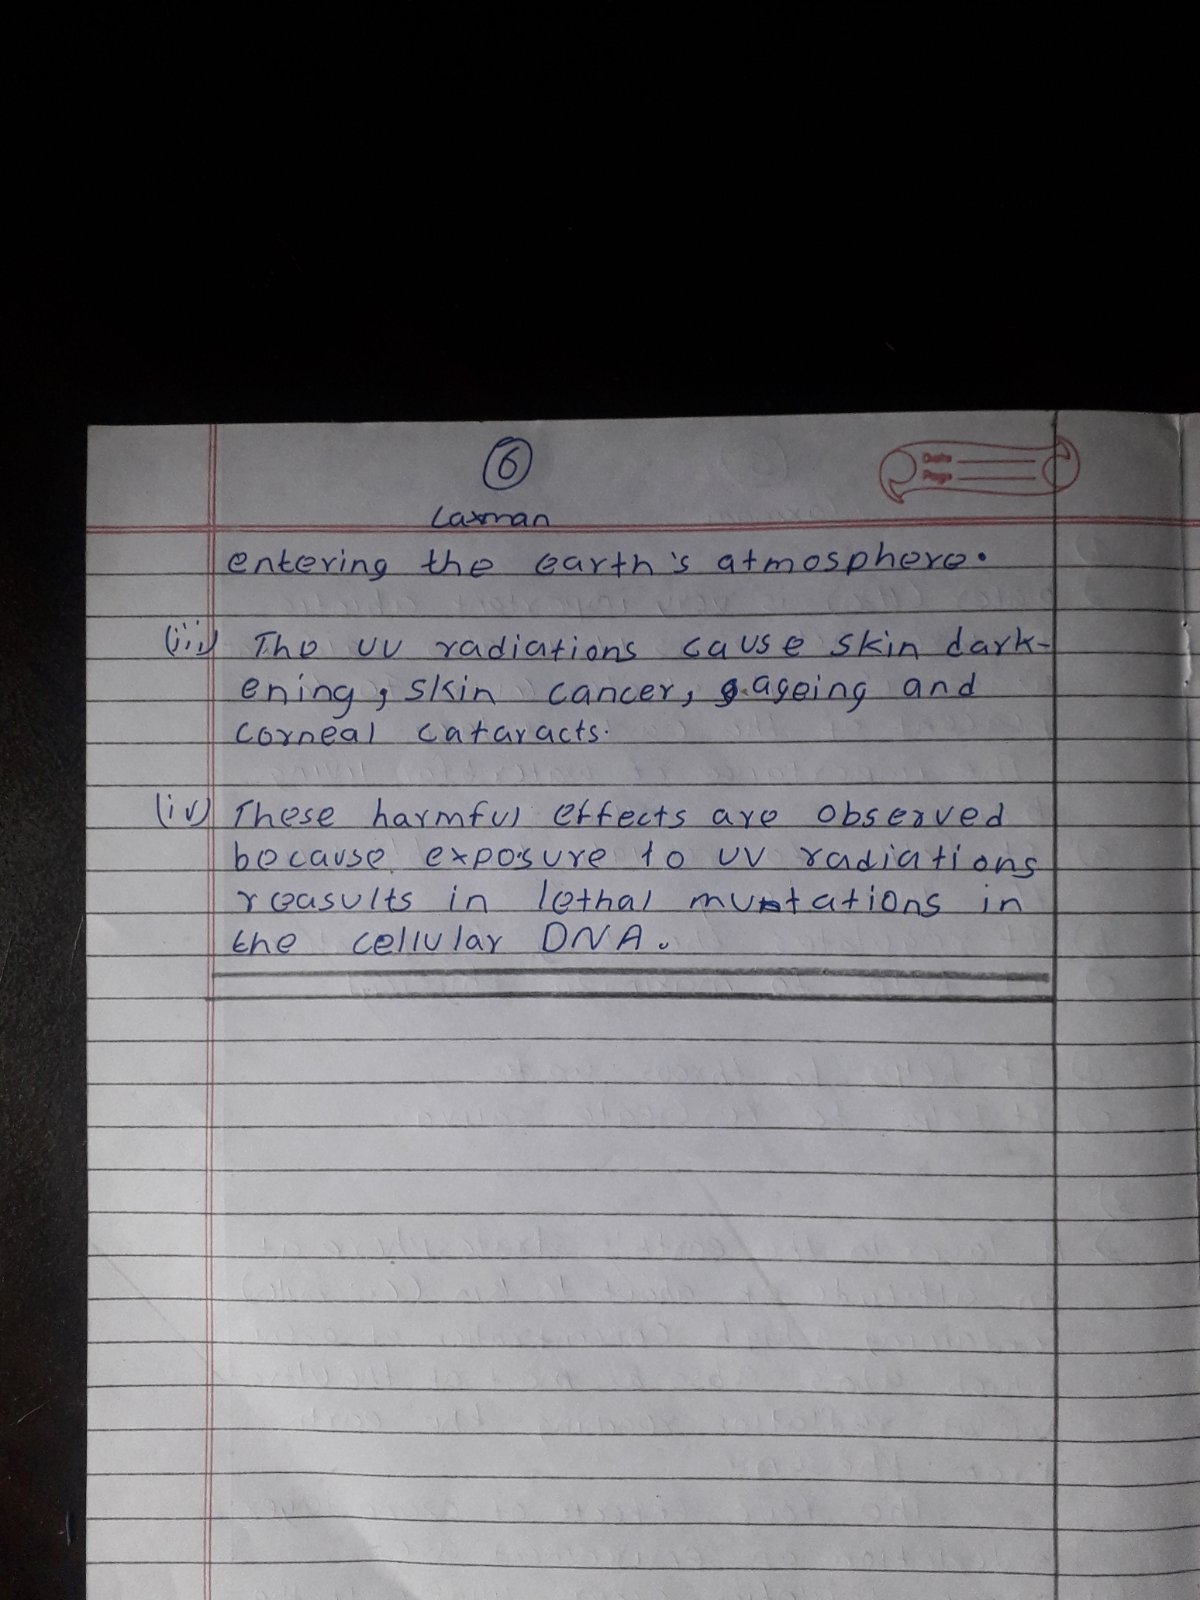 6
Date
Page
Laxman
entering the earth's atmosphere.
(iii) The UV radiations cause skin dark-
ening, skin cancer, ageing and
corneal cataracts.
(iv) These harmful effects are observed
because exposure to UV radiations
reasults in lethal mutations in
the cellular DNA.